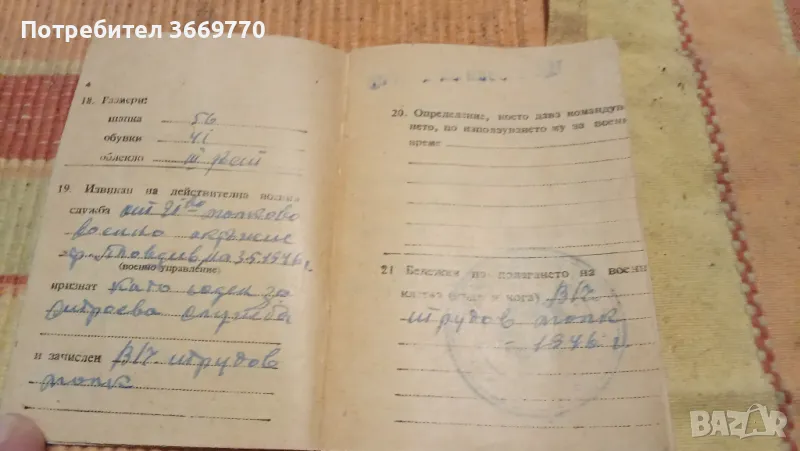 Потребител 3669770
4
18. Размери:
шапка 56
обувки 41
облекло III рай
19. Извикан на действителна военна
служба от 21во полково
военно окръжие
гр. Пловдив на 3.5.1946 г.
(военно управление)
признат като годен за
служба
и зачислен В/17 трудов
полк
20. Определение, което дава командува
нето, по използуването му за военн
време
21 Бележки по полагането на военн
клетва (къде и кога) В/17
трудов полк
- 1946 г.
BAZAR